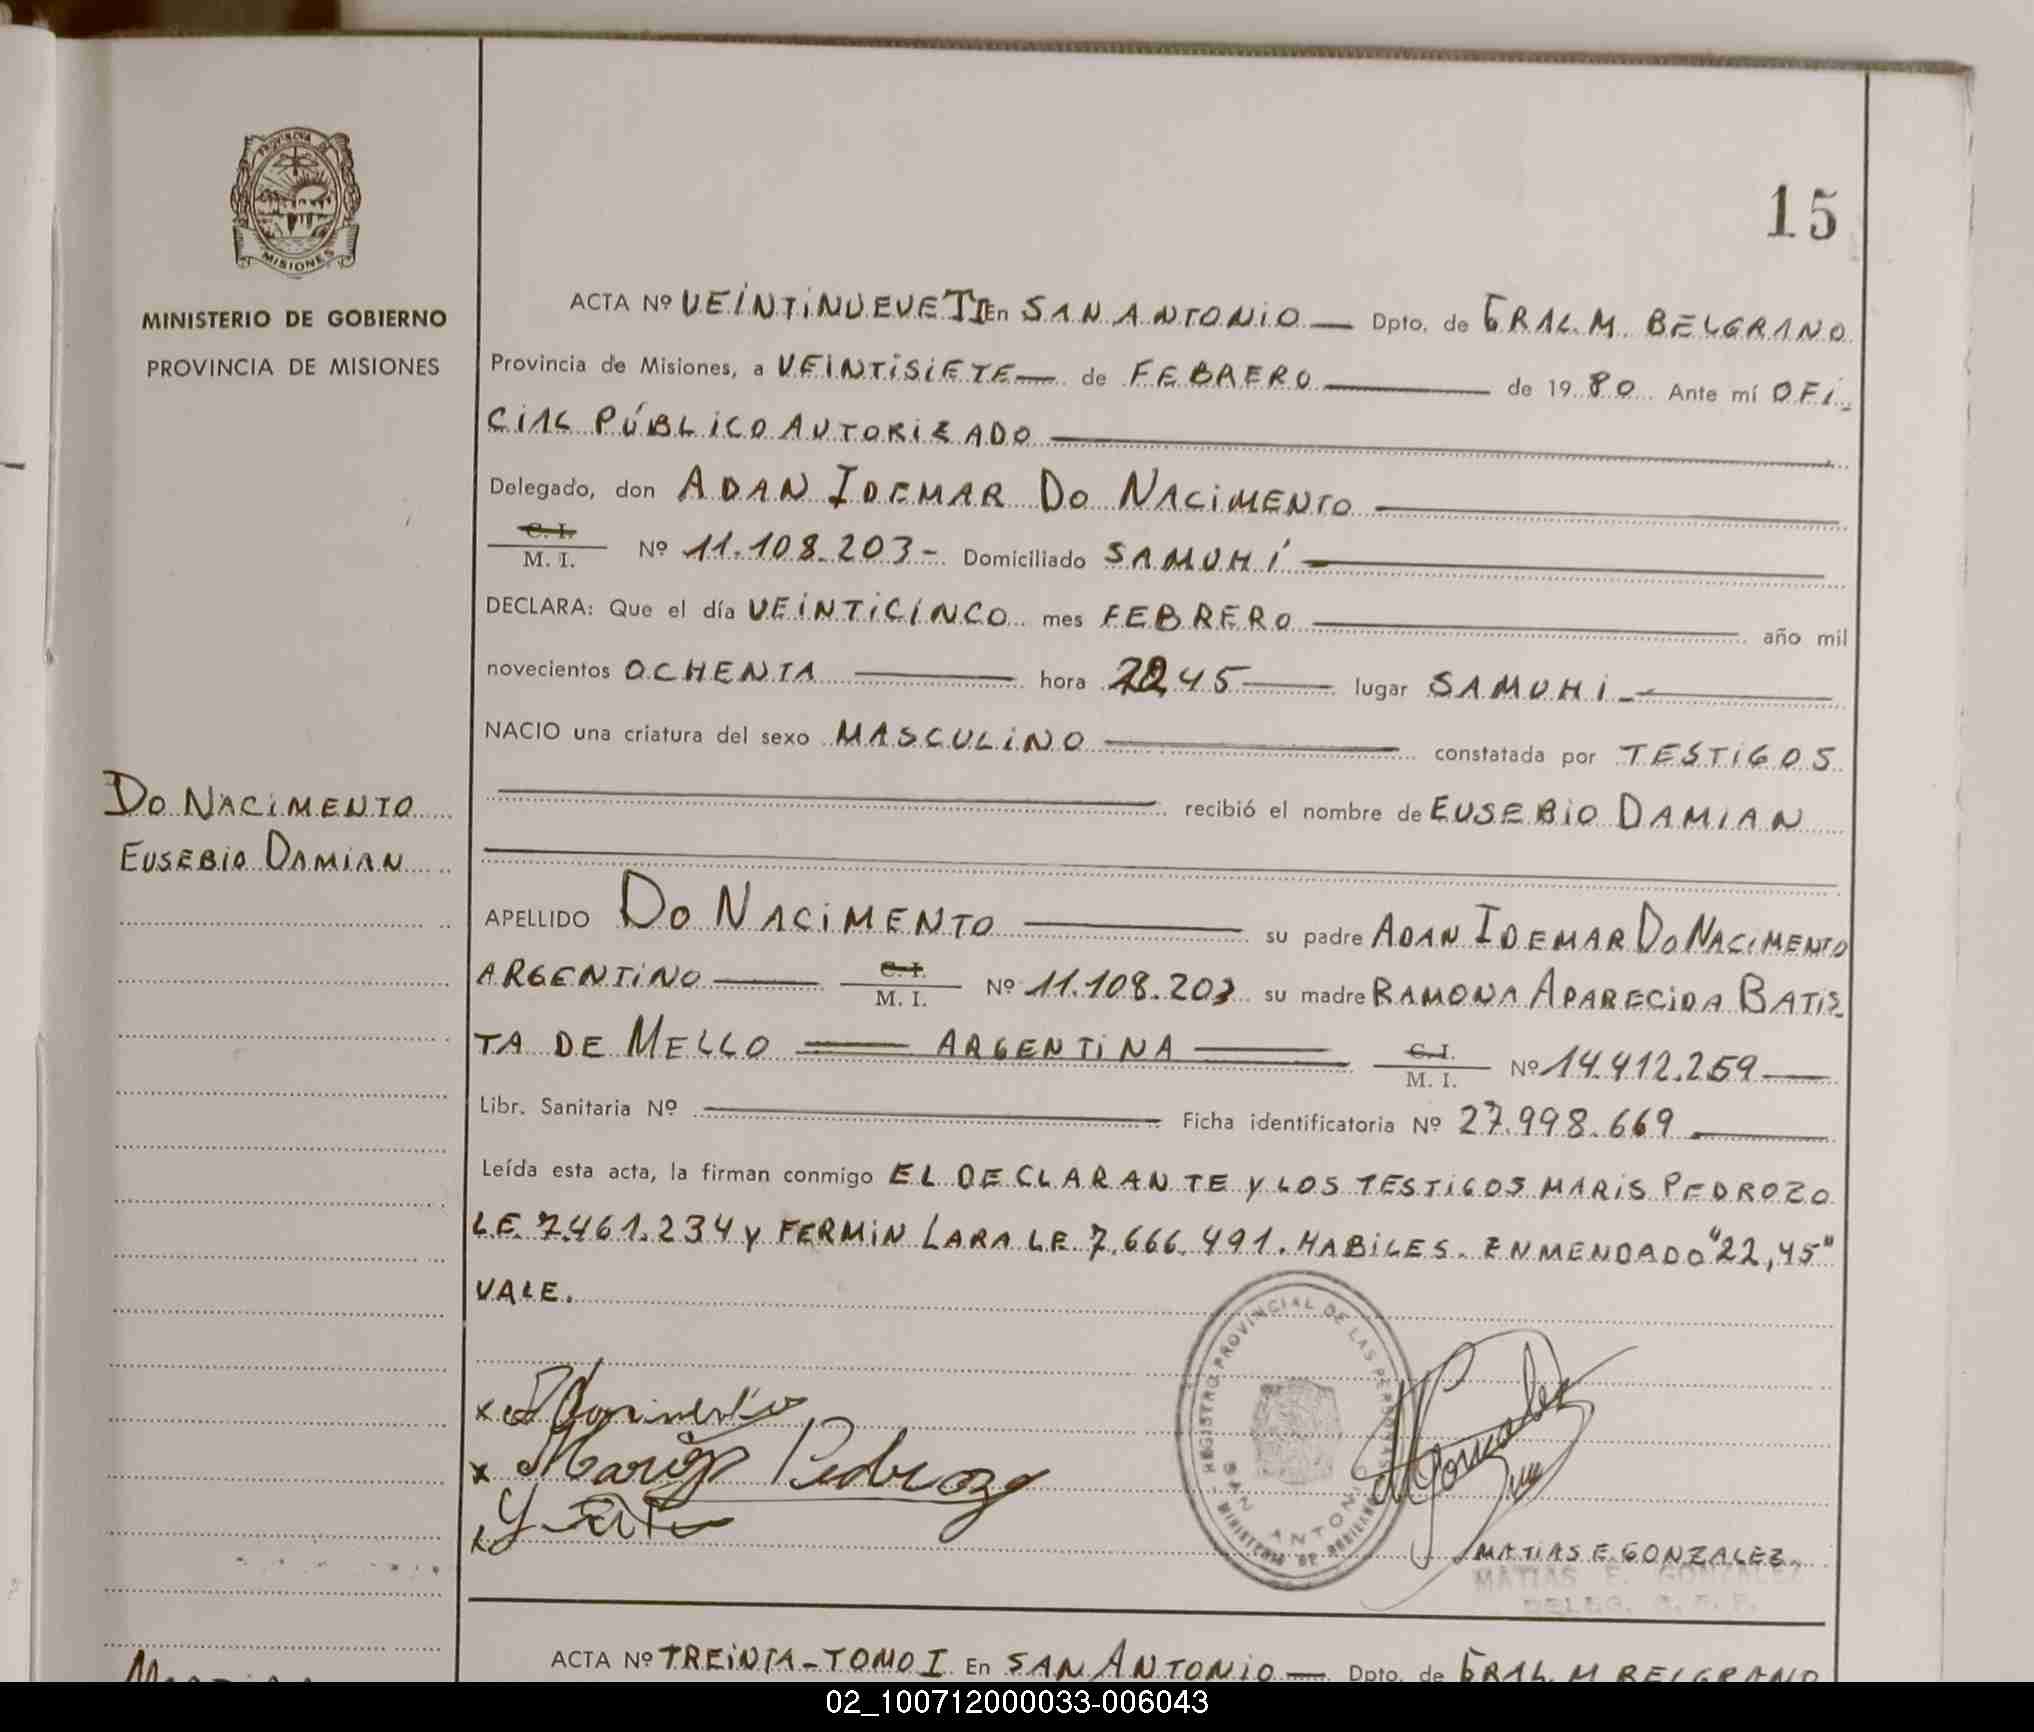 PROVINCIA DE
MISIONES
MINISTERIO DE GOBIERNO
PROVINCIA DE MISIONES
15
ACTA Nº VEINTINUEVE TI En SAN ANTONIO — Dpto. de GRAL. M. BELGRANO
Provincia de Misiones, a VEINTISIETE — de FEBRERO — de 1980 Ante mí OFI-
CIAL PÚBLICO AUTORIZADO —
Delegado, don ADAN IDEMAR DO NACIMENTO —
C. I.
M. I. Nº 11.108.203- Domiciliado SAMUHÍ —
DECLARA: Que el día VEINTICINCO mes FEBRERO — año mil
novecientos OCHENTA — hora 22,45 — lugar SAMUHI —
NACIO una criatura del sexo MASCULINO — constatada por TESTIGOS
— recibió el nombre de EUSEBIO DAMIAN
DO NACIMENTO
EUSEBIO DAMIAN
APELLIDO DO NACIMENTO — su padre ADAN IDEMAR DO NACIMENTO
ARGENTINO — C. I. M. I. Nº 11.108.203 su madre RAMONA APARECIDA BATIS-
TA DE MELLO — ARGENTINA — C. I. M. I. Nº 14.412.259 —
Libr. Sanitaria Nº — Ficha identificatoria Nº 27.998.669 —
Leída esta acta, la firman conmigo EL DECLARANTE y LOS TESTIGOS MARIS PEDROZO
L.E. 7.461.234 y FERMIN LARA L.E. 7.666.491. HABILES. ENMENDADO "22,45"
VALE.
REGISTRO PROVINCIAL DE LAS PERSONAS
SAN ANTONIO
MINISTERIO DE GOBIERNO
x Nacimento
x Maris Pedrozo
x
M Gonzalez
MATIAS E. GONZALEZ
MATIAS E. GONZALEZ
DELEG. R. P. P.
ACTA Nº TREINTA - TOMO I En SAN ANTONIO — Dpto. de GRAL. M. BELGRANO
02_100712000033-006043